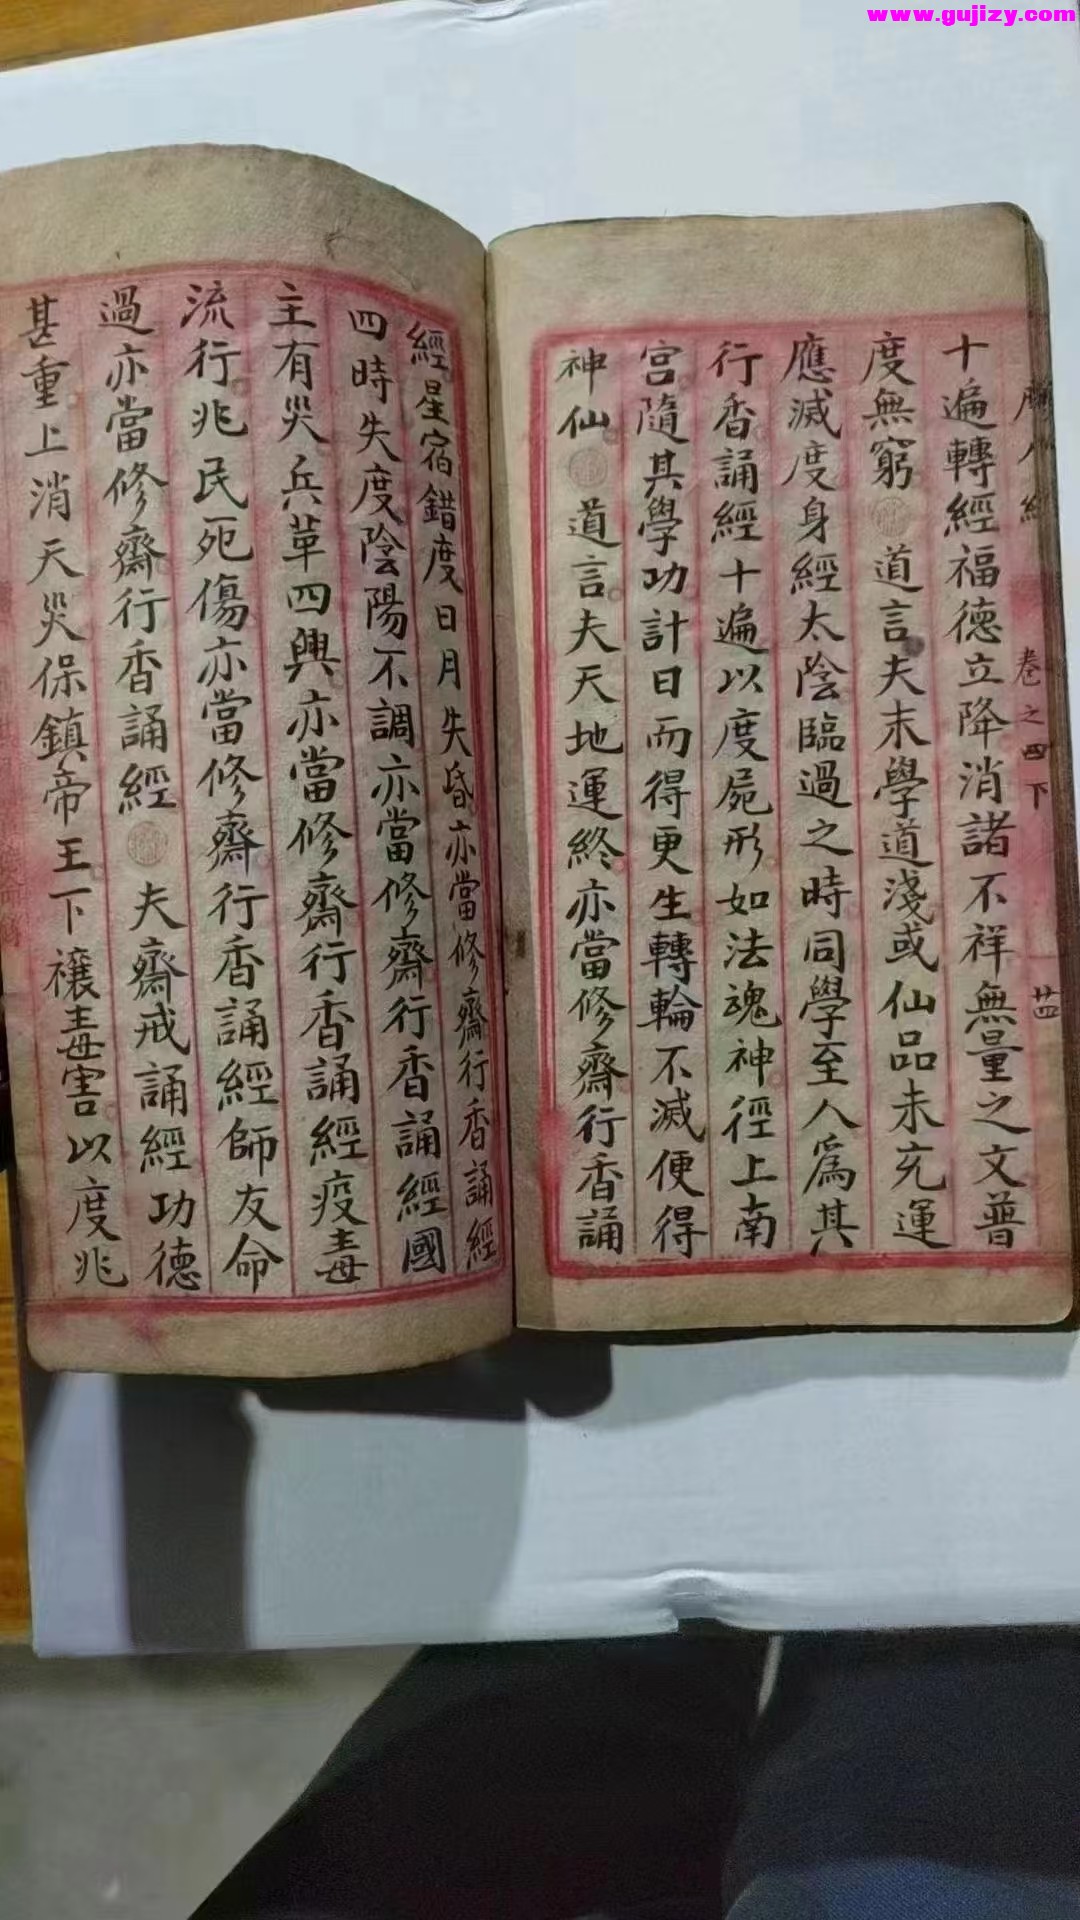 www.gujizy.com
卷之四下
廿四
十遍轉經福德立降消諸不祥無量之文普
度無窮 道言夫末學道淺或仙品未充運
應滅度身經太陰臨過之時同學至人爲其
行香誦經十遍以度屍形如法魂神徑上南
宮隨其學功計日而得更生轉輪不滅便得
神仙 道言夫天地運終亦當修齋行香誦
經星宿錯度日月失昏亦當修齋行香誦經
四時失度陰陽不調亦當修齋行香誦經國
主有災兵革四興亦當修齋行香誦經疫毒
流行兆民死傷亦當修齋行香誦經師友命
過亦當修齋行香誦經 夫齋戒誦經功德
甚重上消天災保鎮帝王下禳毒害以度兆